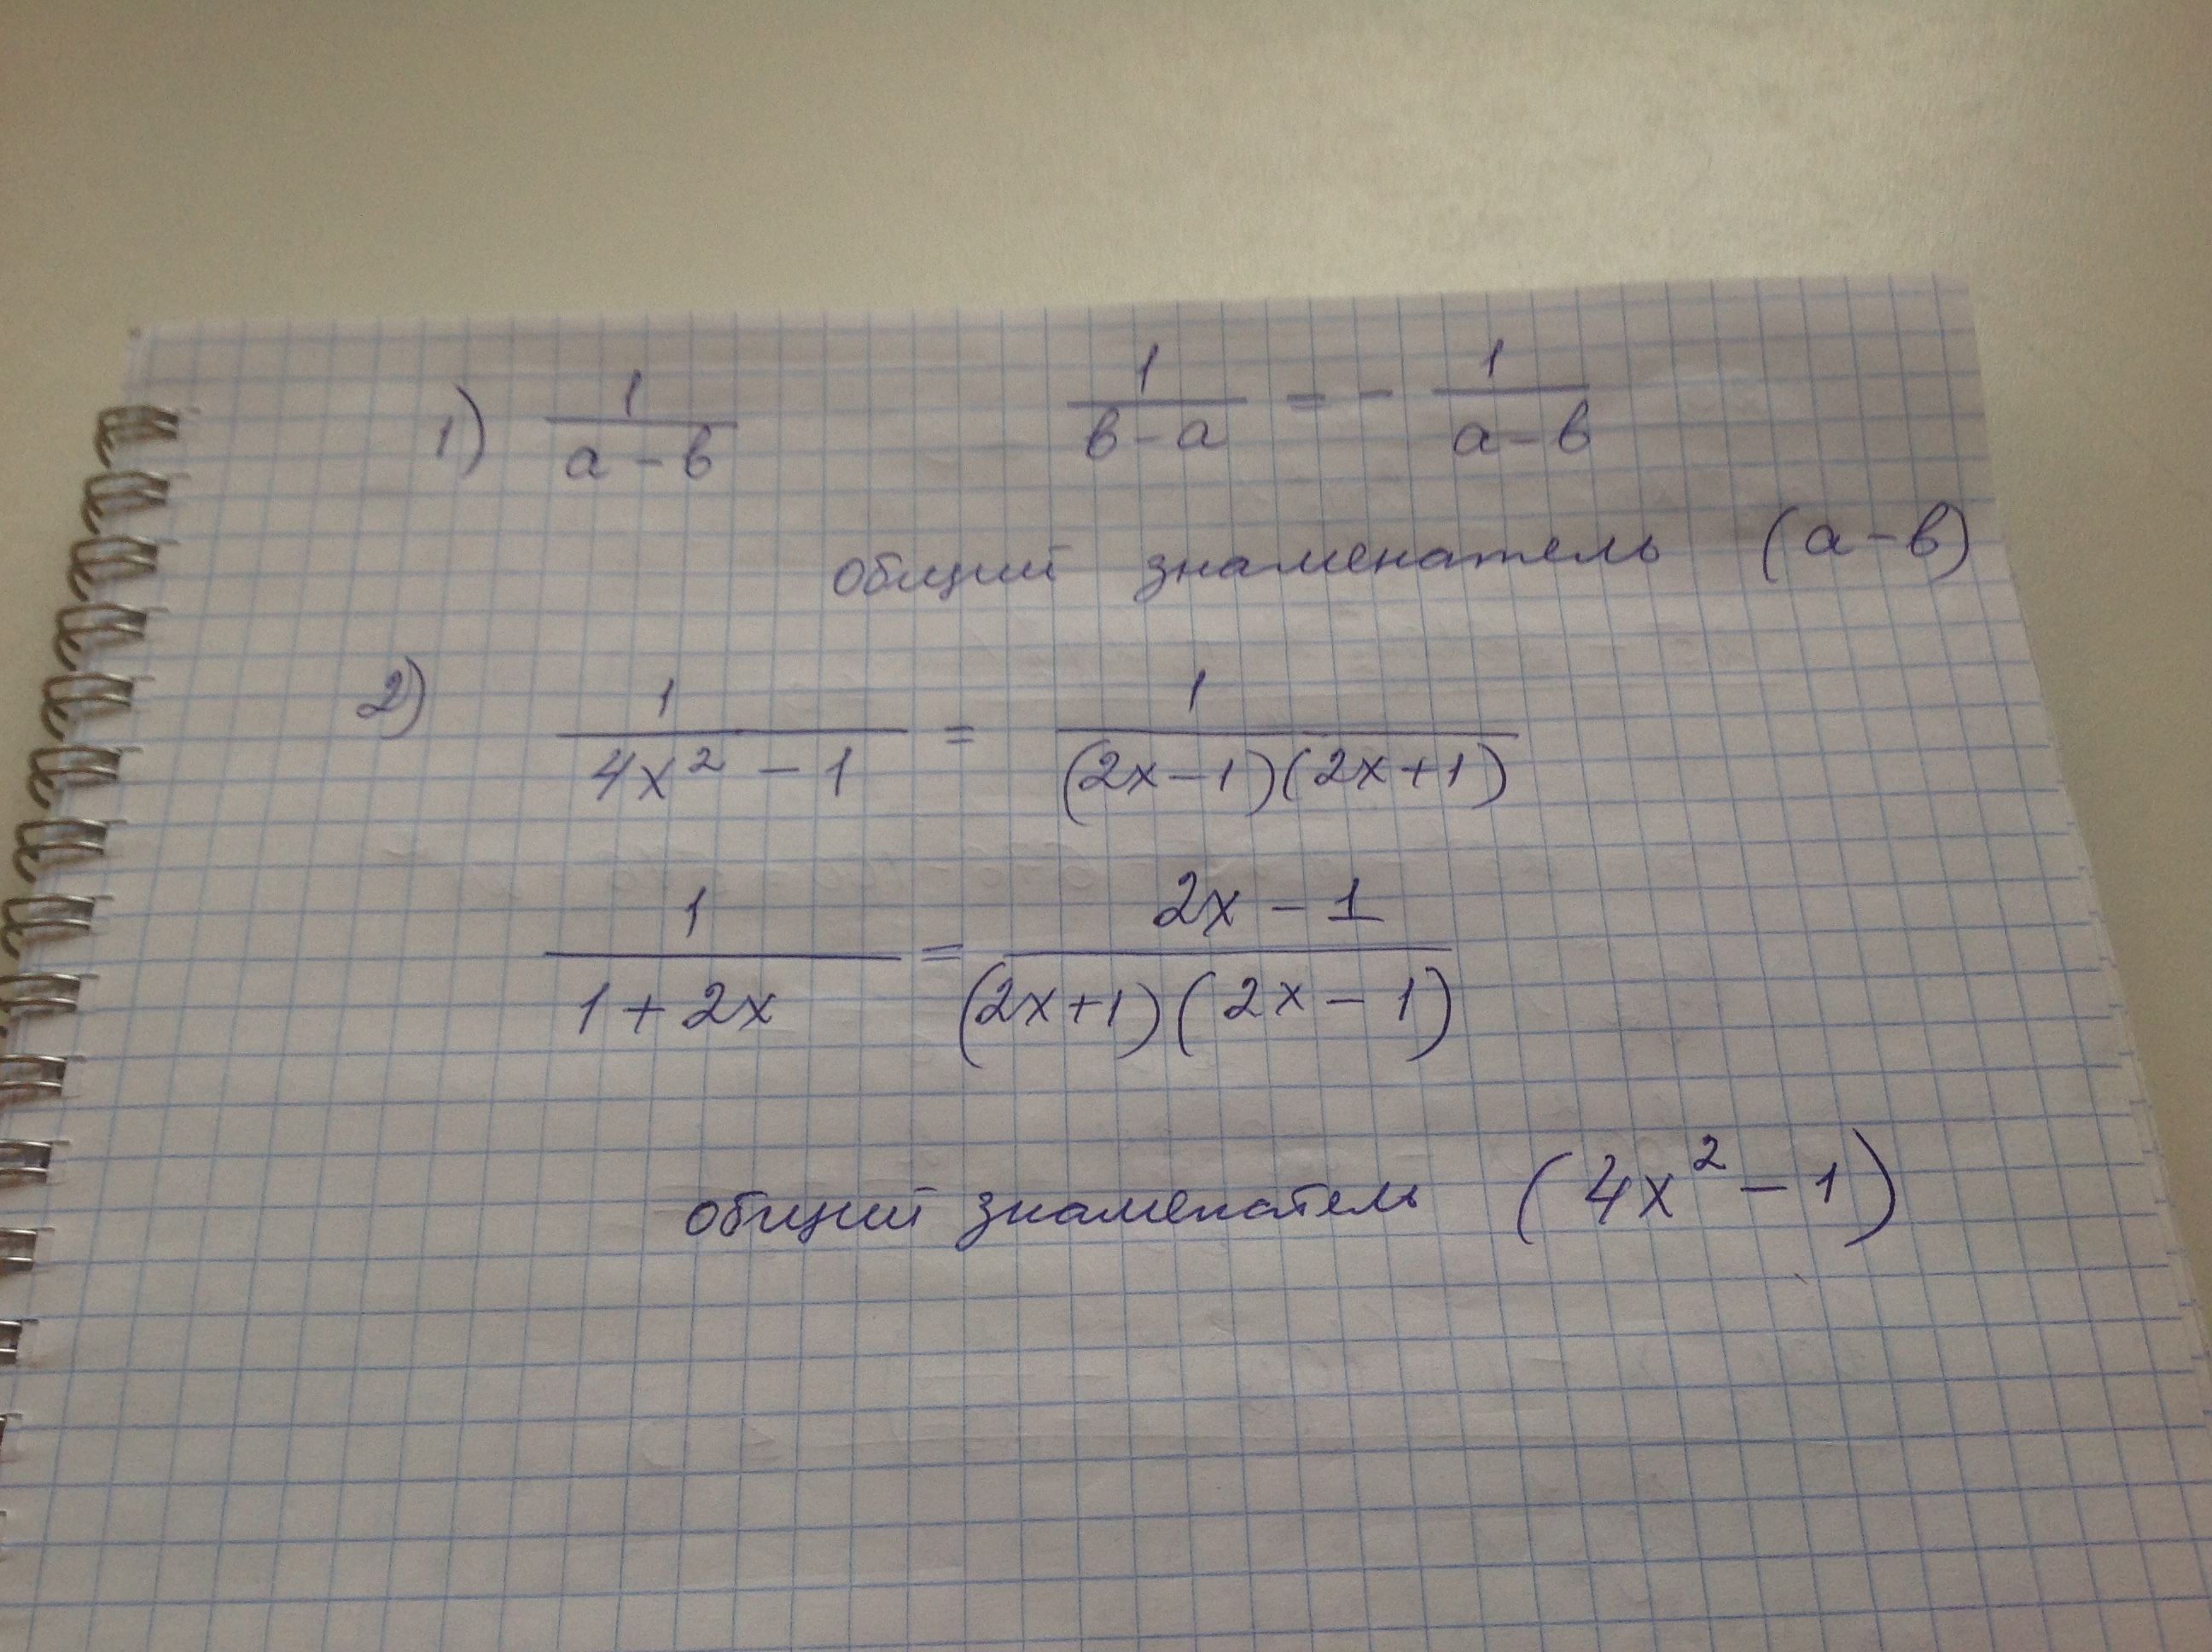 1) 1/(а-в) 1/(в-а) = - 1/(а-в)
общий знаменатель (а-в)
2) 1/(4x² - 1) = 1/((2x-1)(2x+1))
1/(1+2x) = (2x-1)/((2x+1)(2x-1))
общий знаменатель (4x² - 1)